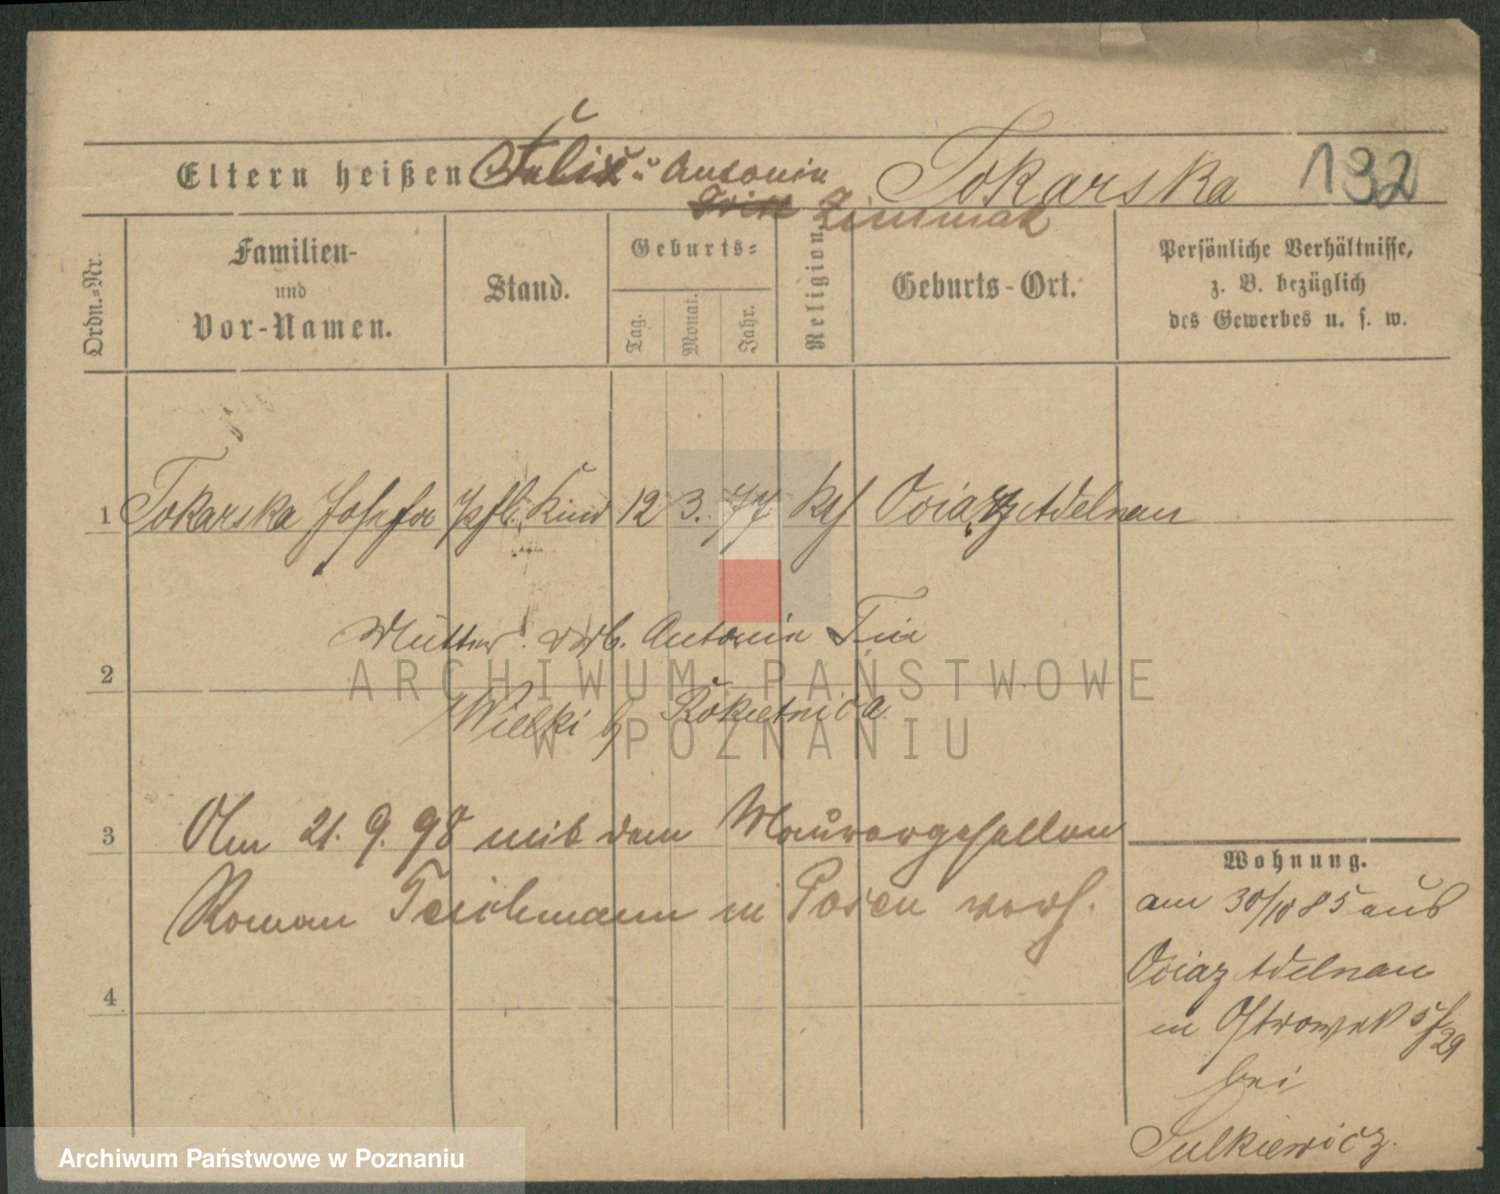 Eltern heißen Felix u Antonin Tokarska 132
Zimmak
Ordn.-Nr.
Familien-
und
Vor-Namen.
Stand.
Geburts-
Tag.
Monat.
Jahr.
Religion.
Geburts-Ort.
Persönliche Verhältnisse,
z. B. bezüglich
des Gewerbes u. s. w.
1 Tokarska Josefa Pfl. Kind 12 3. 77 kth Ociaz Adelnau
Mutter: Antonie
2
Wielki b/ Rokietnica
3 Am 21. 9. 98 mit dem Maurergesellen
Roman Teichmann in Posen verh.
4
Wohnung.
am 30/10 85 aus
Ociaz Adelnau
in Ostrowek 5/29
bei
Sulkiewicz.
ARCHIWUM PAŃSTWOWE
W POZNANIU
Archiwum Państwowe w Poznaniu